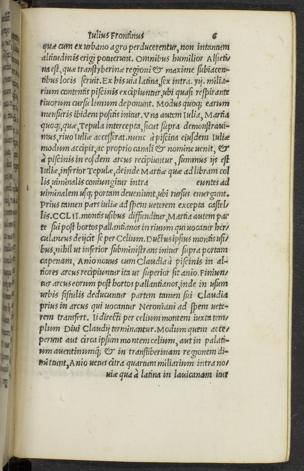 Iulius Frontinus 6
quæ cum ex urbano agro perducerentur, non in tantum
altitudinis erigi potuerunt. Omnibus humilior Alsieti
na est, quæ transtyberinæ regioni & maxime subiacen
tibus locis seruit. Ex his via latina, sex intra. vij. milia
rium contentis piscinis excipiuntur, ubi quasi respirante
riuorum cursu limum deponunt. Modus quoq; earum
mensuris ibidem positis initur. Vna autem Iulia, Martia
quoq; quæ Tepula intercepta, sicut supra demonstraui
mus, riuo Iuliæ accesserat. nunc à piscina eiusdem Iuliæ
modum accipit, ac proprio canali & nomine uenit, &
à piscinis in eosdem arcus recipiuntur, summus ijs est
Iulia, inferior Tepulæ, deinde Martia quæ ad libram col
lis uiminalis coniunguntur intra euntes ad
uiminalem usq; portam deueniunt, ubi rursus emergunt.
Prius tamen pars iuliæ ad spem ueterem excepta castel
lis. CCL II. montis usibus diffunditur, Martia autem par
te sui post hortos pallantianos in riuum qui uocatur her
culaneus deijcit se per Celium. Ductus ipsius montis usi
bus, nihil ut inferior subministrans initur supra portam
capenam, Anio nouus cum Claudia à piscinis in al-
tiores arcus recipiuntur ita ut superior sit anio. Finiun-
tur arcus eorum post hortos pallantianos, inde in usum
urbis fistulis deducuntur partem tamen sui Claudia
prius in arcus qui uocantur Neroniani ad spem uete-
rem transfert. Ii directi per celium montem iuxta tem-
plum Diui Claudij terminantur. Modum quem acce-
perunt aut circa ipsum montem celium, aut in palati-
um auentinumq; & in transtiberinam regionem di-
mittunt, Anio uetus citra quartum miliarium intra no/
uiæ qua à latina in lauicanam iter